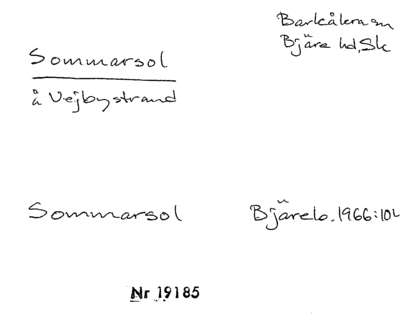 Barkåkra sn
Bjäre hd, Sk
Sommarsol
å Vejbystrand
Sommarsol
Bjäreb. 1966:102
Nr 19185